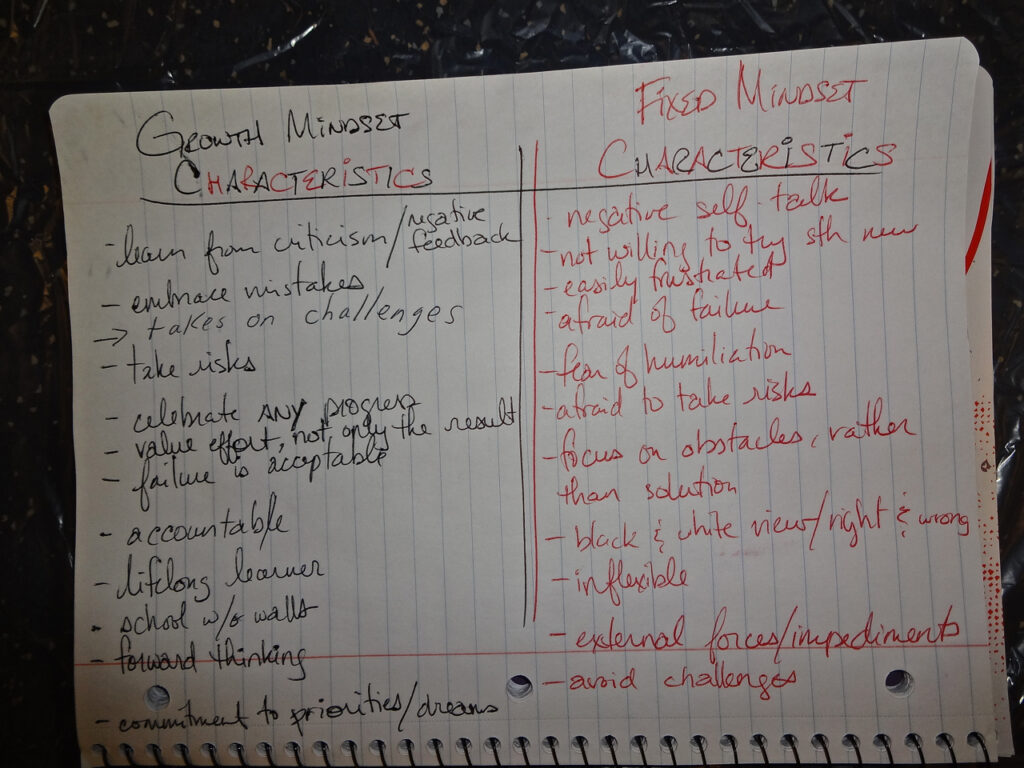 GROWTH MINDSET
CHARACTERISTICS
- learn from criticism/negative feedback
- embrace mistakes
→ takes on challenges
- take risks
- celebrate ANY progress
- value effort, not only the result
- failure is acceptable
- accountable
- lifelong learner
- school w/o walls
- forward thinking
- commitment to priorities/dreams
FIXED MINDSET
CHARACTERISTICS
- negative self talk
- not willing to try sth new
- easily frustrated
- afraid of failure
- fear of humiliation
- afraid to take risks
- focus on obstacles, rather
than solution
- black & white view/right & wrong
- inflexible
- external forces/impediments
- avoid challenges